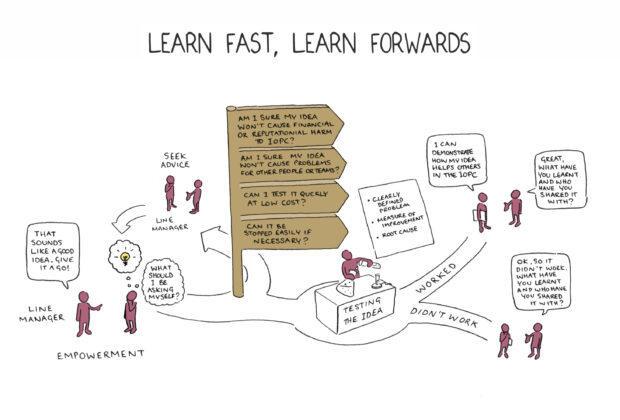 LEARN FAST, LEARN FORWARDS
AM I SURE MY IDEA
WON'T CAUSE FINANCIAL
OR REPUTATIONAL HARM
TO IOPC?
AM I SURE MY IDEA
WON'T CAUSE PROBLEMS
FOR OTHER PEOPLE OR TEAMS?
CAN I TEST IT QUICKLY
AT LOW COST?
CAN IT BE
STOPPED EASILY IF
NECESSARY?
SEEK
ADVICE
LINE
MANAGER
THAT
SOUNDS
LIKE A GOOD
IDEA, GIVE
IT A GO!
WHAT
SHOULD
I BE
ASKING
MYSELF?
LINE
MANAGER
EMPOWERMENT
• CLEARLY
DEFINED
PROBLEM
• MEASURE OF
IMPROVEMENT
• ROOT CAUSE
TESTING
THE IDEA
WORKED
DIDN'T WORK
I CAN
DEMONSTRATE
HOW MY IDEA
HELPS OTHERS
IN THE IOPC
GREAT,
WHAT HAVE
YOU LEARNT
AND WHO
HAVE YOU
SHARED IT
WITH?
OK, SO IT
DIDN'T WORK.
WHAT HAVE
YOU LEARNT
AND WHO HAVE
YOU SHARED
IT WITH?